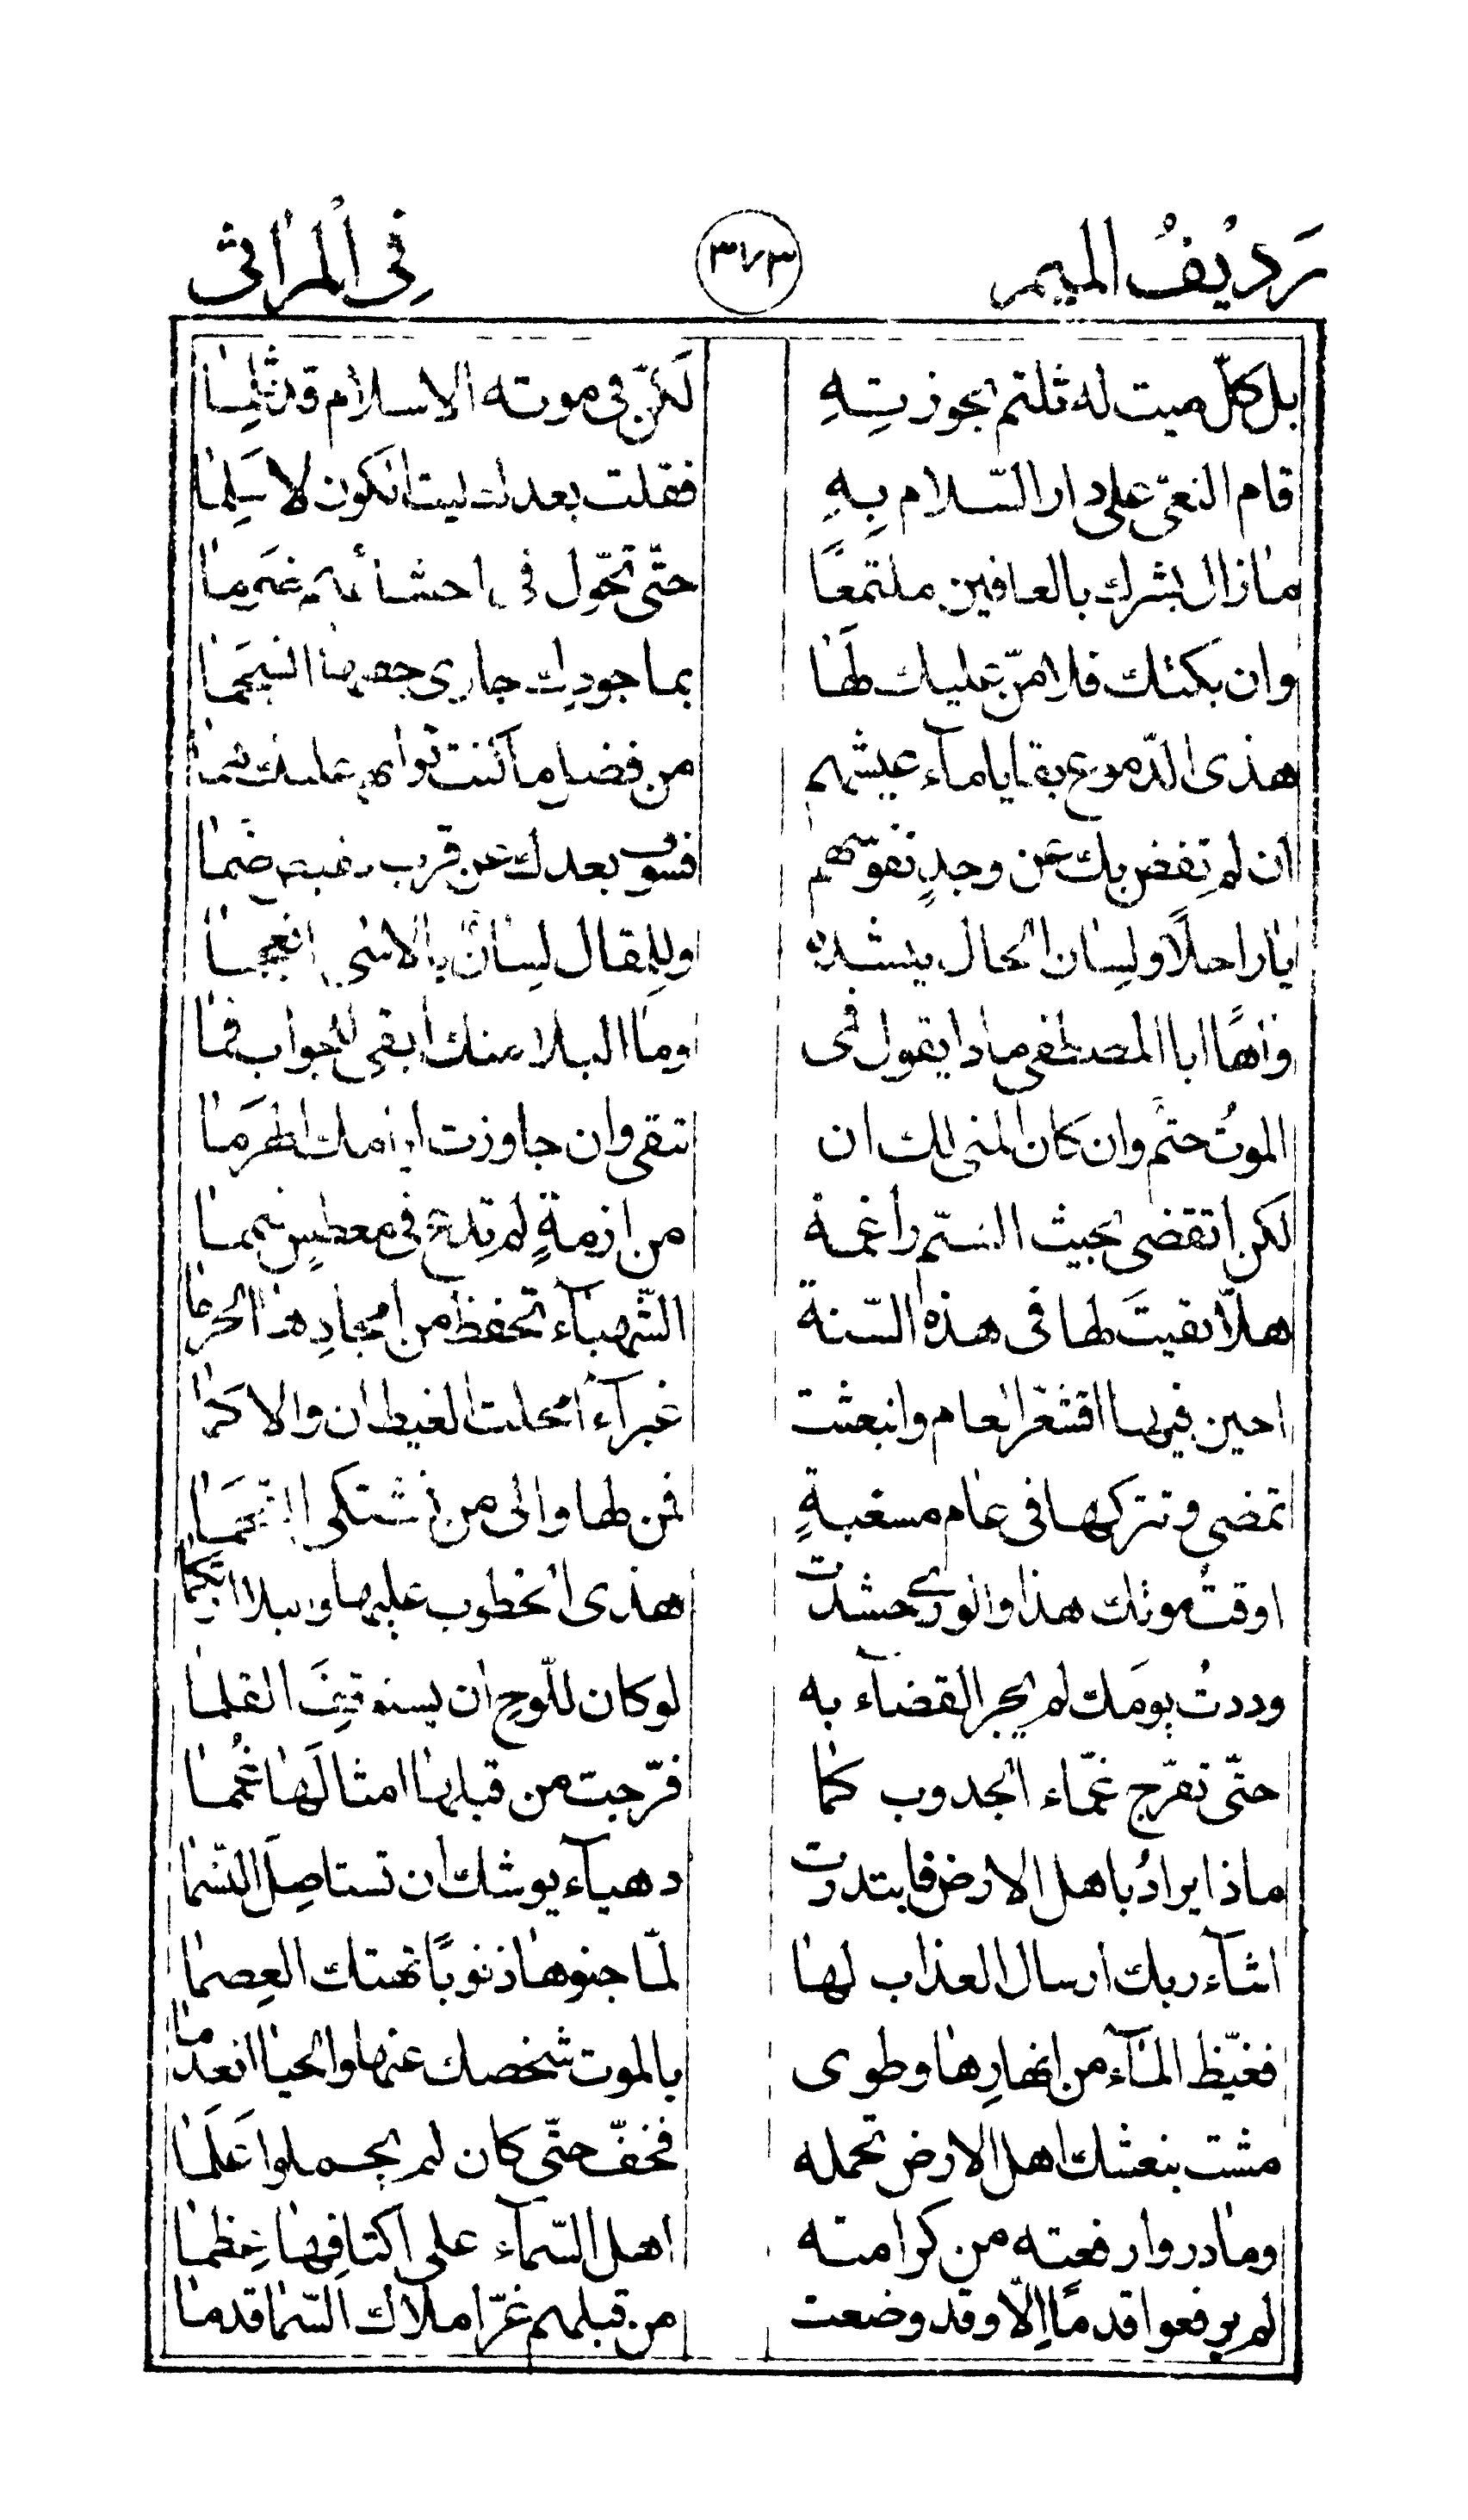 رديف الميم ٣٧٣ في المراثي
بل كلّ ميت له ثلتم بحوزتِهِ لكنّ في موته الاسلام قد ثلما
قام النعيّ على دار السّلام بِهِ فقلت بعدك ليتا تكون لا سَلِما
ما زال بشرك بالعافين ملتمعًا حتّى تحّول في احشائه ضرما
وان بكتك فلا منّ عليك لها بما جودك جاري جفنها انسجما
هذى الدّموع بقايا مآء عيشهم من فضل ما كنت توليهم عليك هما
ان لم تفض بك عن وجدٍ نفوسهم فسوف بعدك عن قرب تفيض ضما
يا راحلًا ولسان الحال ينشده وللمقال لسانٌ بالاسى انعجما
واهًا ابا المصطفى ماذا يقول فمى وما البلا منك ابقى للجواب فما
الموتُ حتم وان كان المنى لك ان تبقى وان جاوزت ايامك الهرما
لكن اتقضى بحيث السّتم راغمة من ازمةٍ لم تدع في معطسٍ شمما
هلّا بقيتَ لها في هذه السّنة الشّهبآء تحفظ من امجادها الحرما
احين فيها اقشعّر العام وانبعثت غبرآءُ امحلت الغيطان والاكما
تمضى وتتركها في عام مسغبةٍ فمن لها والى من تشتكى القحما
اوقتُ موتك هذا والورى حشدت هذى الخطوب عليها والبلا ارتكما
وددتُ يومَك لم يجر القضآء به لو كان للّوح ان يستوقفَ القلما
حتّى تفرّج غمّاء الجدوب كما فرّجت من قبلها امثالَها غُمما
ماذا يرادُ باهل الارض فابتدرت دهيآء يوشك ان تستاصلَ النّسما
اشآء ربك ارسال العذاب لها لمّا جنوها ذنوبًا تهتك العِصما
فغيّظ المآء من انهارِها وطوى بالموت شخصك عنها والحيا انعدما
مشت بنعشك اهل الارض تحمله فخفّ حتّى كان لم يحملوا عَلَما
وما دروا رفعته من كرامته اهل السّمآء على اكتافِها عِظما
لم يرفعوا قدمًا اِلّا وقد وضعت من قبلهم غرّ املاك السّما قدما